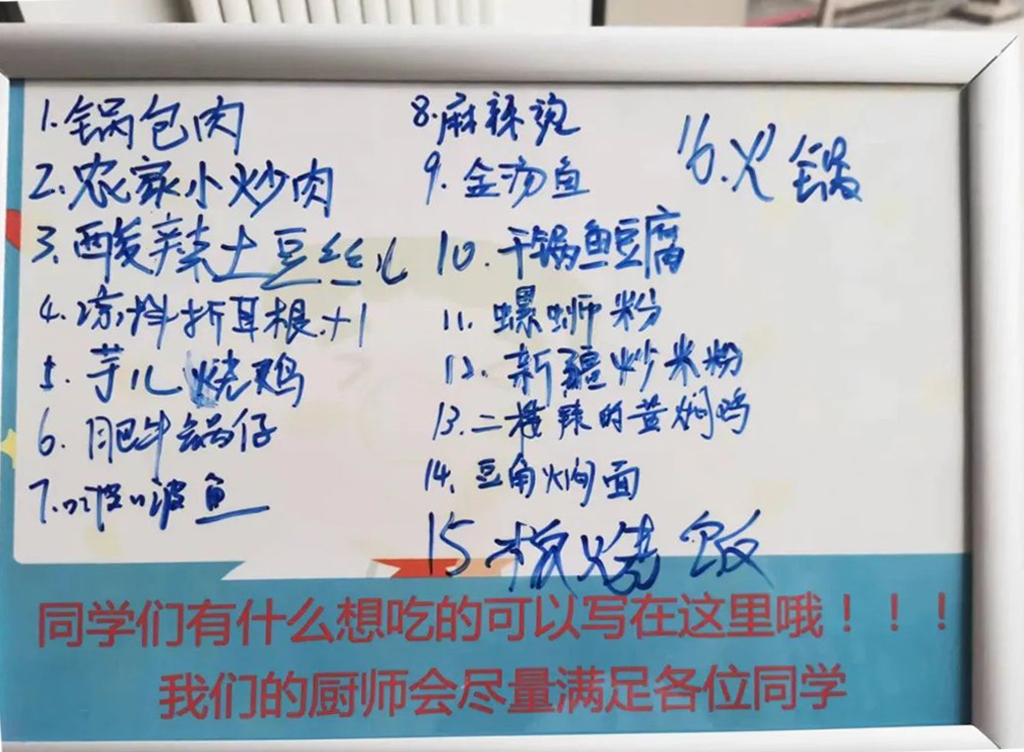 1.锅包肉
2.农家小炒肉
3.酸辣土豆丝儿
4.凉拌折耳根+1
5.芋儿烧鸡
6.肥牛锅仔
7.啵啵鱼
8.麻辣烫
9.金汤鱼
10.干锅鱼豆腐
11.螺蛳粉
12.新疆炒米粉
13.二楼辣的黄焖鸡
14.豆角焖面
15 板烧饭
16.火锅
同学们有什么想吃的可以写在这里哦！！！
我们的厨师会尽量满足各位同学